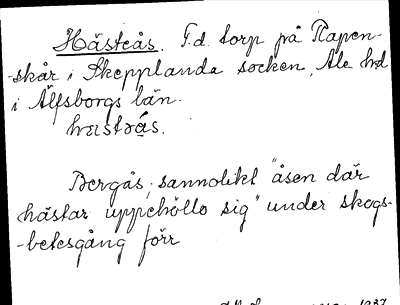 Hästeås. F.d. torp på Rapen-
-skår i Skepplanda socken, Ale hd
i Älfsborgs län.
Bergås, sannolikt "åsen där
hästar uppehöllo sig" under skogs-
-betesgång förr
1937